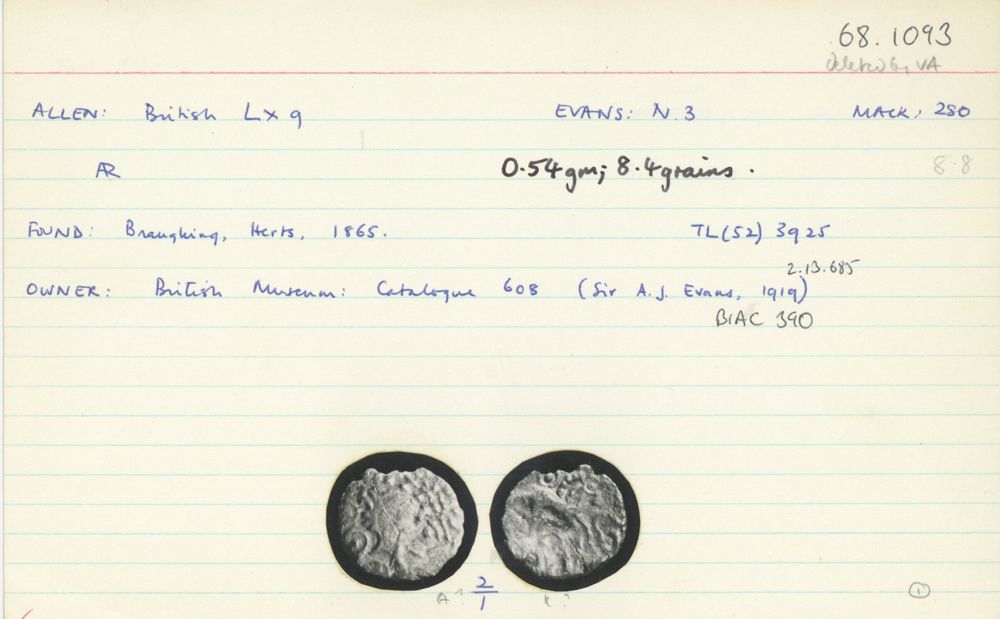 68.1093
Deleted by VA
ALLEN: British LX 9 EVANS: N.3 MACK: 280
AR 0.54 gm; 8.4 grains. 8.8
FOUND: Braughing, Herts, 1865. TL(52) 3925
2.13.685
OWNER: British Museum: Catalogue 608 (Sir A.J. Evans, 1919)
BIAC 390
2
A? 1 R?
1